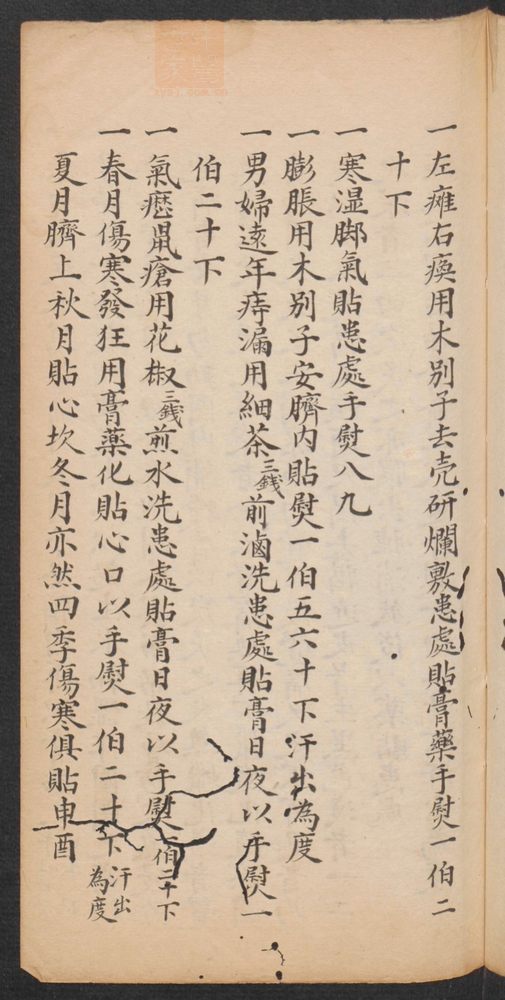 一左瘫右瘓用木别子去壳研爛敷患處貼膏藥手熨一伯二
十下
一寒湿脚氣貼患處手熨八九
一膨脹用木别子安臍内貼熨一伯五六十下汗出為度
一男婦遠年痔漏用細茶三錢前滷洗患處貼膏日夜以手熨一
伯二十下
一氣癧鼠瘡用花椒三錢煎水洗患處貼膏日夜以手熨一伯二十下
一春月傷寒發狂用膏藥化貼心口以手熨一伯二十下汗出為度
夏月臍上秋月貼心坎冬月亦然四季傷寒俱貼申酉